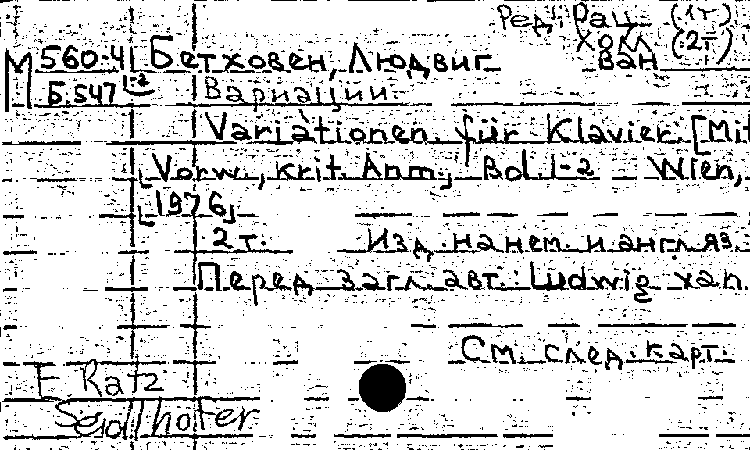 Ред. Рац. (1т)
Холл (2т)
М 560-4 Бетховен, Людвиг ван
Б.547 1-2 Вариации.
Variationen für Klavier. [Mit
Vorw., krit. Anm.] Bd. 1-2 — Wien,
[1976]
2 т. Изд. на нем. и англ яз.
Перед загл. авт.: Ludwig van
См. след. карт.
E Ratz